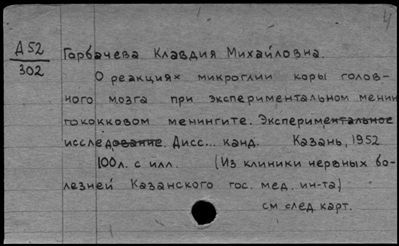 Д 52
302
Горбачева Клавдия Михайловна.
О реакциях микроглии коры голов-
ного мозга при экспериментальном менин
гококковом менингите. Экспериментальное
исследование. Дисс... канд. Казань, 1952
100л. с илл. (Из клиники нервных бо-
лезней Казанского гос. мед. ин-та)
см след. карт.